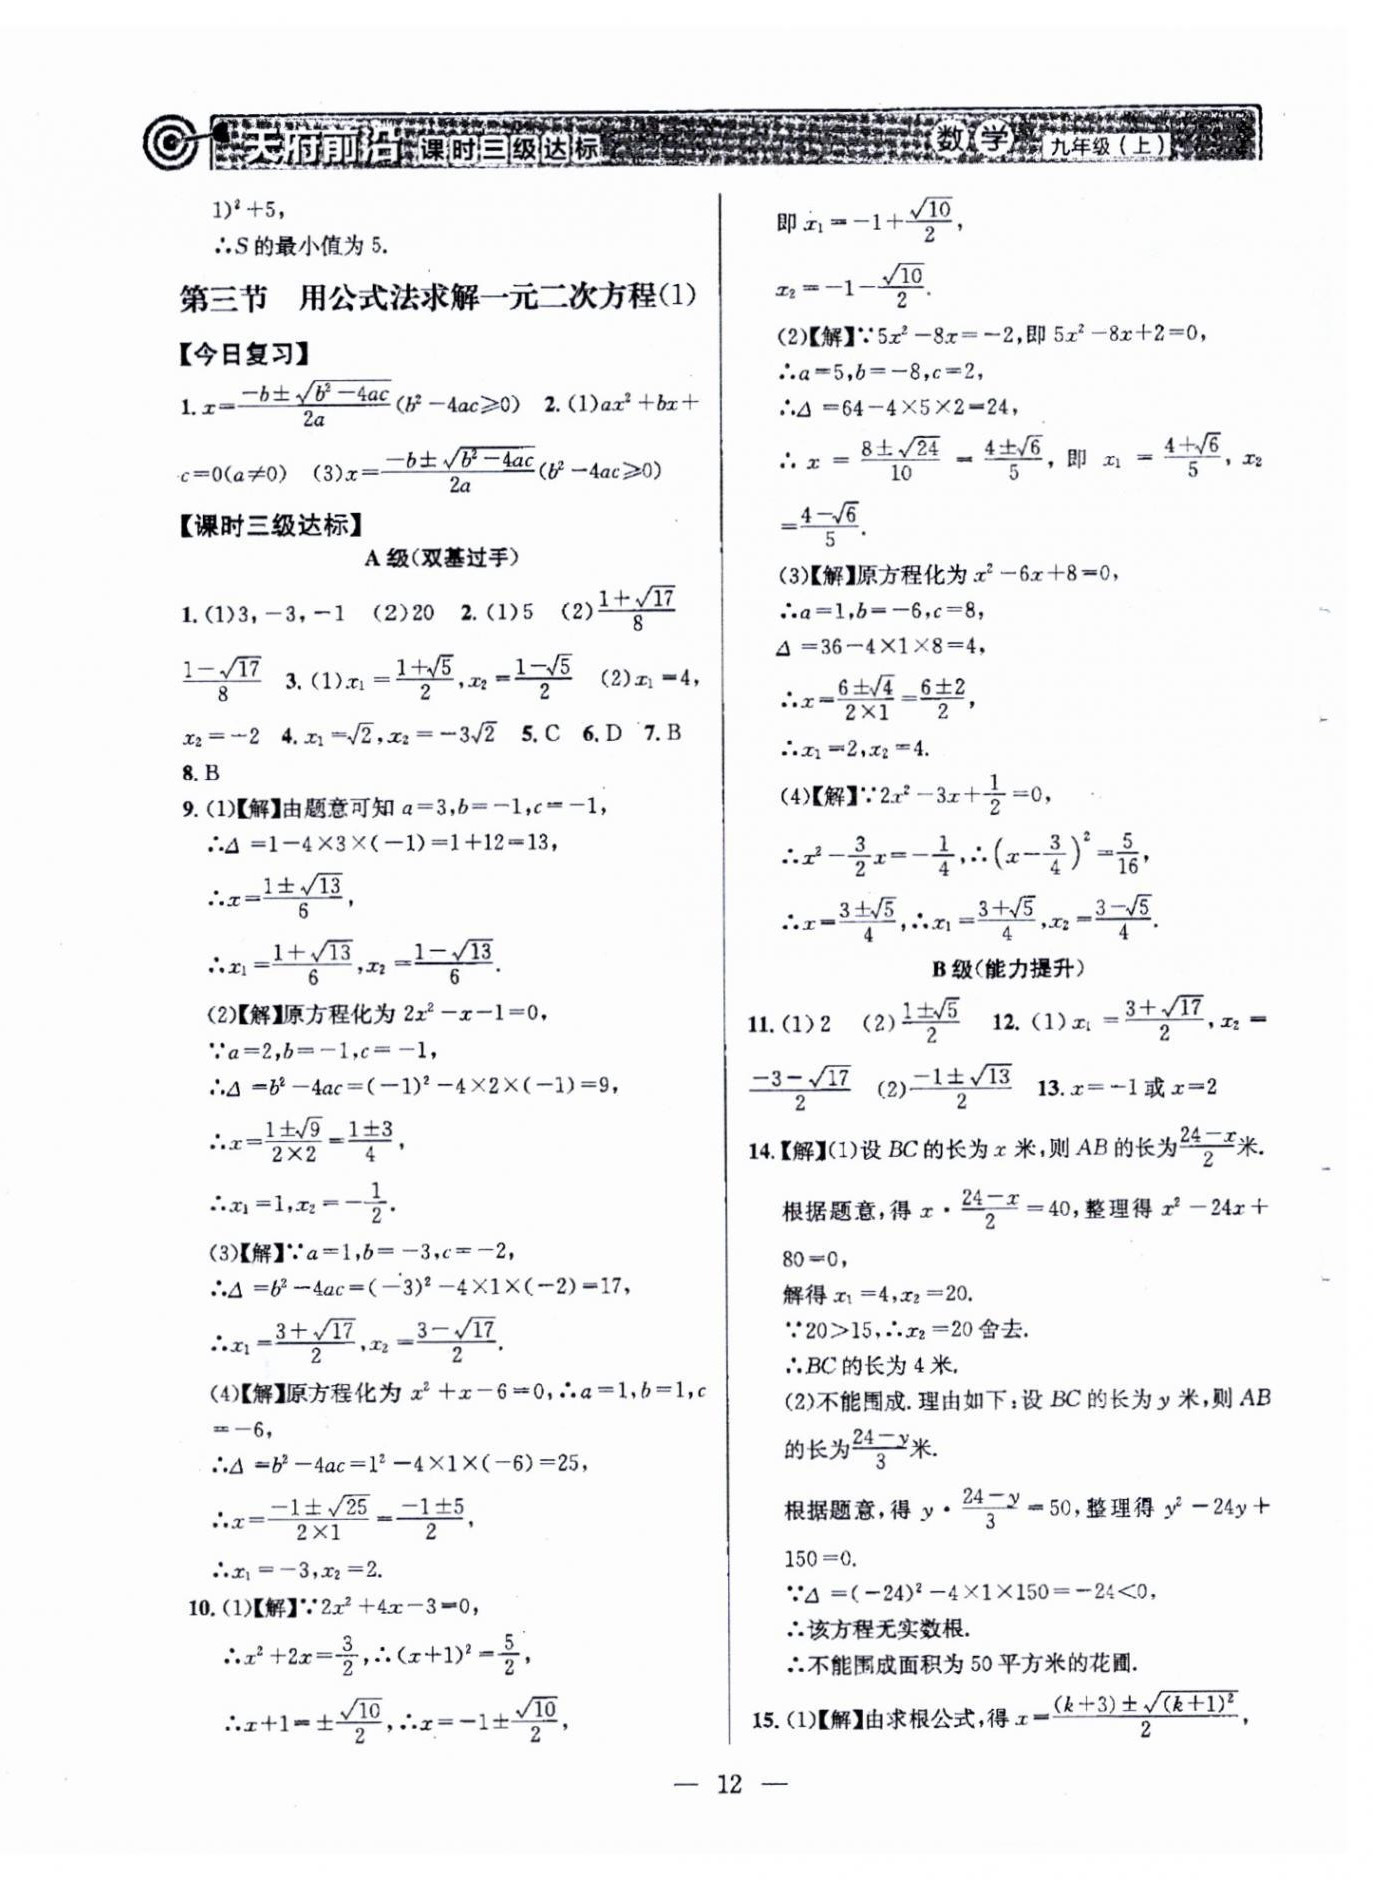 天府前沿 课时三级达标 数学 九年级(上)
1)²+5,
∴S的最小值为5.
第三节 用公式法求解一元二次方程(1)
【今日复习】
1. x=\frac{-b±√(b²-4ac)}{2a}(b²-4ac≥0) 2. (1)ax²+bx+
c=0(a≠0) (3)x=\frac{-b±√(b²-4ac)}{2a}(b²-4ac≥0)
【课时三级达标】
A级(双基过手)
1. (1)3,-3,-1 (2)20 2. (1)5 (2)\frac{1+√17}{8}
\frac{1-√17}{8} 3. (1)x₁=\frac{1+√5}{2},x₂=\frac{1-√5}{2} (2)x₁=4,
x₂=-2 4. x₁=√2,x₂=-3√2 5. C 6. D 7. B
8. B
9. (1)【解】由题意可知a=3,b=-1,c=-1,
∴Δ=1-4×3×(-1)=1+12=13,
∴x=\frac{1±√13}{6},
∴x₁=\frac{1+√13}{6},x₂=\frac{1-√13}{6}.
(2)【解】原方程化为2x²-x-1=0,
∵a=2,b=-1,c=-1,
∴Δ=b²-4ac=(-1)²-4×2×(-1)=9,
∴x=\frac{1±√9}{2×2}=\frac{1±3}{4},
∴x₁=1,x₂=-\frac{1}{2}.
(3)【解】∵a=1,b=-3,c=-2,
∴Δ=b²-4ac=(-3)²-4×1×(-2)=17,
∴x₁=\frac{3+√17}{2},x₂=\frac{3-√17}{2}.
(4)【解】原方程化为x²+x-6=0,∴a=1,b=1,c
=-6,
∴Δ=b²-4ac=1²-4×1×(-6)=25,
∴x=\frac{-1±√25}{2×1}=\frac{-1±5}{2},
∴x₁=-3,x₂=2.
10. (1)【解】∵2x²+4x-3=0,
∴x²+2x=\frac{3}{2},∴(x+1)²=\frac{5}{2},
∴x+1=±\frac{√10}{2},∴x=-1±\frac{√10}{2},
即x₁=-1+\frac{√10}{2},
x₂=-1-\frac{√10}{2}.
(2)【解】∵5x²-8x=-2,即5x²-8x+2=0,
∴a=5,b=-8,c=2,
∴Δ=64-4×5×2=24,
∴x=\frac{8±√24}{10}=\frac{4±√6}{5},即x₁=\frac{4+√6}{5},x₂
=\frac{4-√6}{5}.
(3)【解】原方程化为x²-6x+8=0,
∴a=1,b=-6,c=8,
Δ=36-4×1×8=4,
∴x=\frac{6±√4}{2×1}=\frac{6±2}{2},
∴x₁=2,x₂=4.
(4)【解】∵2x²-3x+\frac{1}{2}=0,
∴x²-\frac{3}{2}x=-\frac{1}{4},∴(x-\frac{3}{4})²=\frac{5}{16},
∴x=\frac{3±√5}{4},∴x₁=\frac{3+√5}{4},x₂=\frac{3-√5}{4}.
B级(能力提升)
11. (1)2 (2)\frac{1±√5}{2} 12. (1)x₁=\frac{3+√17}{2},x₂=
\frac{-3-√17}{2} (2)\frac{-1±√13}{2} 13. x=-1或x=2
14.【解】(1)设BC的长为x米,则AB的长为\frac{24-x}{2}米.
根据题意,得x·\frac{24-x}{2}=40,整理得x²-24x+
80=0,
解得x₁=4,x₂=20.
∵20>15,∴x₂=20舍去.
∴BC的长为4米.
(2)不能围成.理由如下:设BC的长为y米,则AB
的长为\frac{24-y}{3}米.
根据题意,得y·\frac{24-y}{3}=50,整理得y²-24y+
150=0.
∵Δ=(-24)²-4×1×150=-24<0,
∴该方程无实数根.
∴不能围成面积为50平方米的花圃.
15. (1)【解】由求根公式,得x=\frac{(k+3)±√(k+1)²}{2},
— 12 —